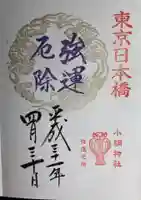 東京日本橋
強運
厄除
小網神社
平成三十一年
四月三十日